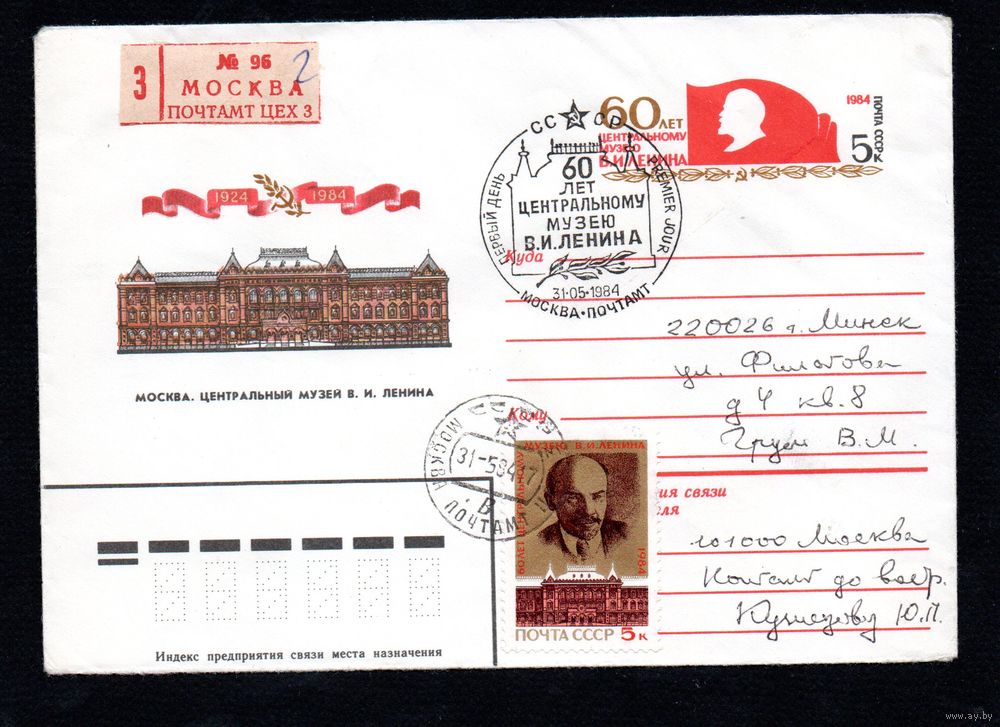 З № 96 2
МОСКВА
ПОЧТАМТ ЦЕХ 3
60 ЛЕТ
ЦЕНТРАЛЬНОМУ
МУЗЕЮ
В.И.ЛЕНИНА
1984
ПОЧТА СССР
5 К
СССР
ПЕРВЫЙ ДЕНЬ
PREMIER JOUR
60
ЛЕТ
ЦЕНТРАЛЬНОМУ
МУЗЕЮ
В.И.ЛЕНИНА
31·05·1984
МОСКВА·ПОЧТАМТ
1924 1984
МОСКВА. ЦЕНТРАЛЬНЫЙ МУЗЕЙ В. И. ЛЕНИНА
Куда
220026 г. Минск
ул. Филатова
д 4 кв. 8
Кому
В. М.
МОСКВА ПОЧТАМТ
31-584
В
60 ЛЕТ ЦЕНТРАЛЬНОМУ МУЗЕЮ В.И.ЛЕНИНА
1984
ПОЧТА СССР 5 к
ия связи
ля
101000 Москва
до востр.
Ю.П.
Индекс предприятия связи места назначения
www.ay.by